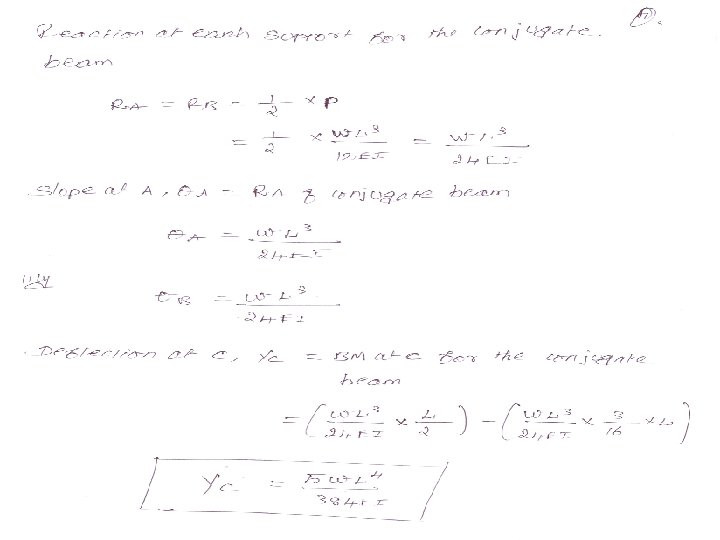 Reaction at each support for the conjugate. 
beam
RA = RB = 1/2 × P
= 1/2 × WL³/12EI = WL³/24EI
Slope at A, θA = RA of conjugate beam
θA = WL³/24EI
lly
θB = WL³/24EI
Deflection at C, Yc = BM at C for the conjugate
beam
= (WL³/24EI × L/2) - (WL³/24EI × 3/16 × L)
Yc = 5WL⁴/384EI